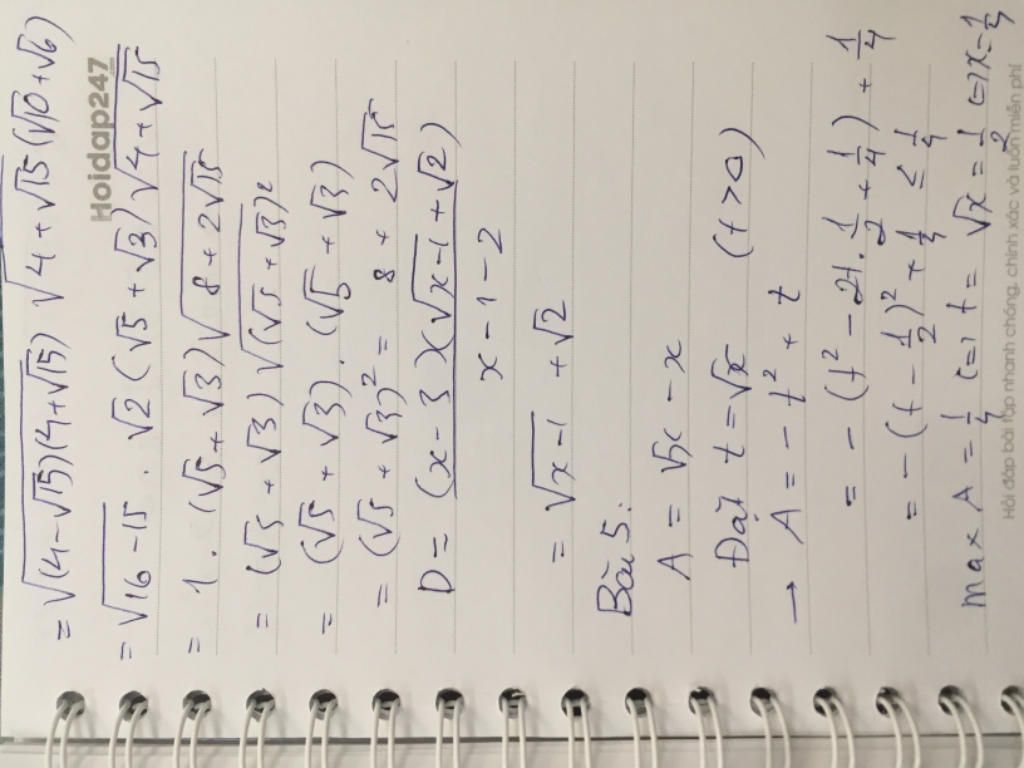 = √(4-√15)(4+√15) √4+√15 (√10+√6)
Hoidap247
= √16-15 . √2 (√5+√3) √4+√15
= 1 . (√5+√3) √8+2√15
= (√5+√3) √(√5+√3)²
= (√5+√3) . (√5+√3)
= (√5+√3)² = 8 + 2√15
D = (x-3)(√x-1+√2)
x-1-2
= √x-1 + √2
Bài 5:
A = √x - x
Đặt t = √x (t>0)
→ A = -t² + t
= -(t² - 2t.1/2 + 1/4) + 1/4
= -(t - 1/2)² + 1/4 ≤ 1/4
max A = 1/4 (=) t = √x = 1/2 (=) x = 1/4
Hỏi đáp bài tập nhanh chóng, chính xác và luôn miễn phí